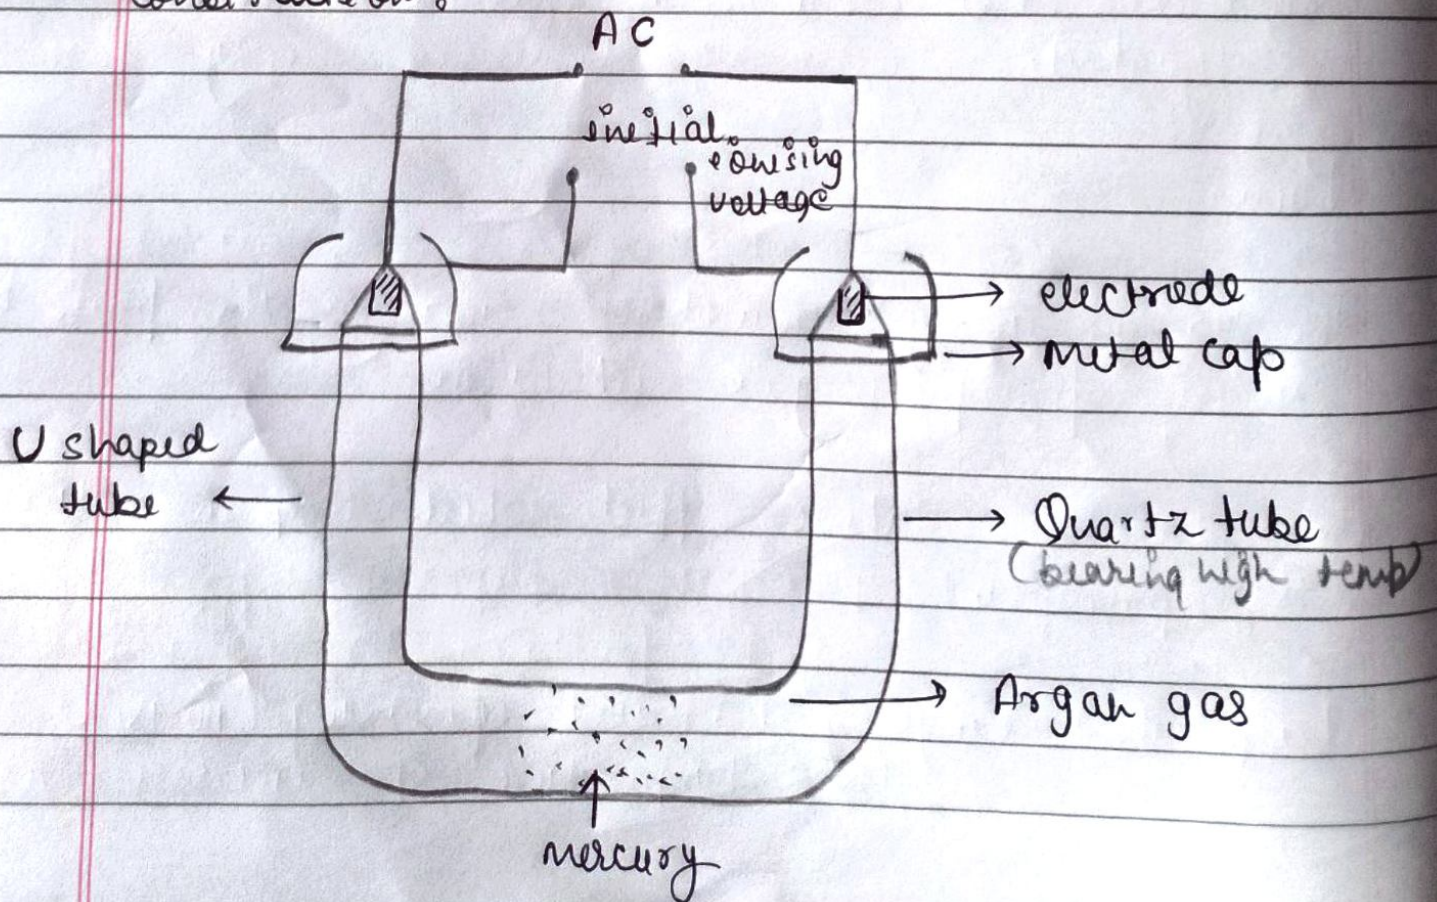 AC
initial
ionising
voltage
electrode
Metal cap
U shaped
tube
Quartz tube
(bearing high temp)
Argan gas
mercury